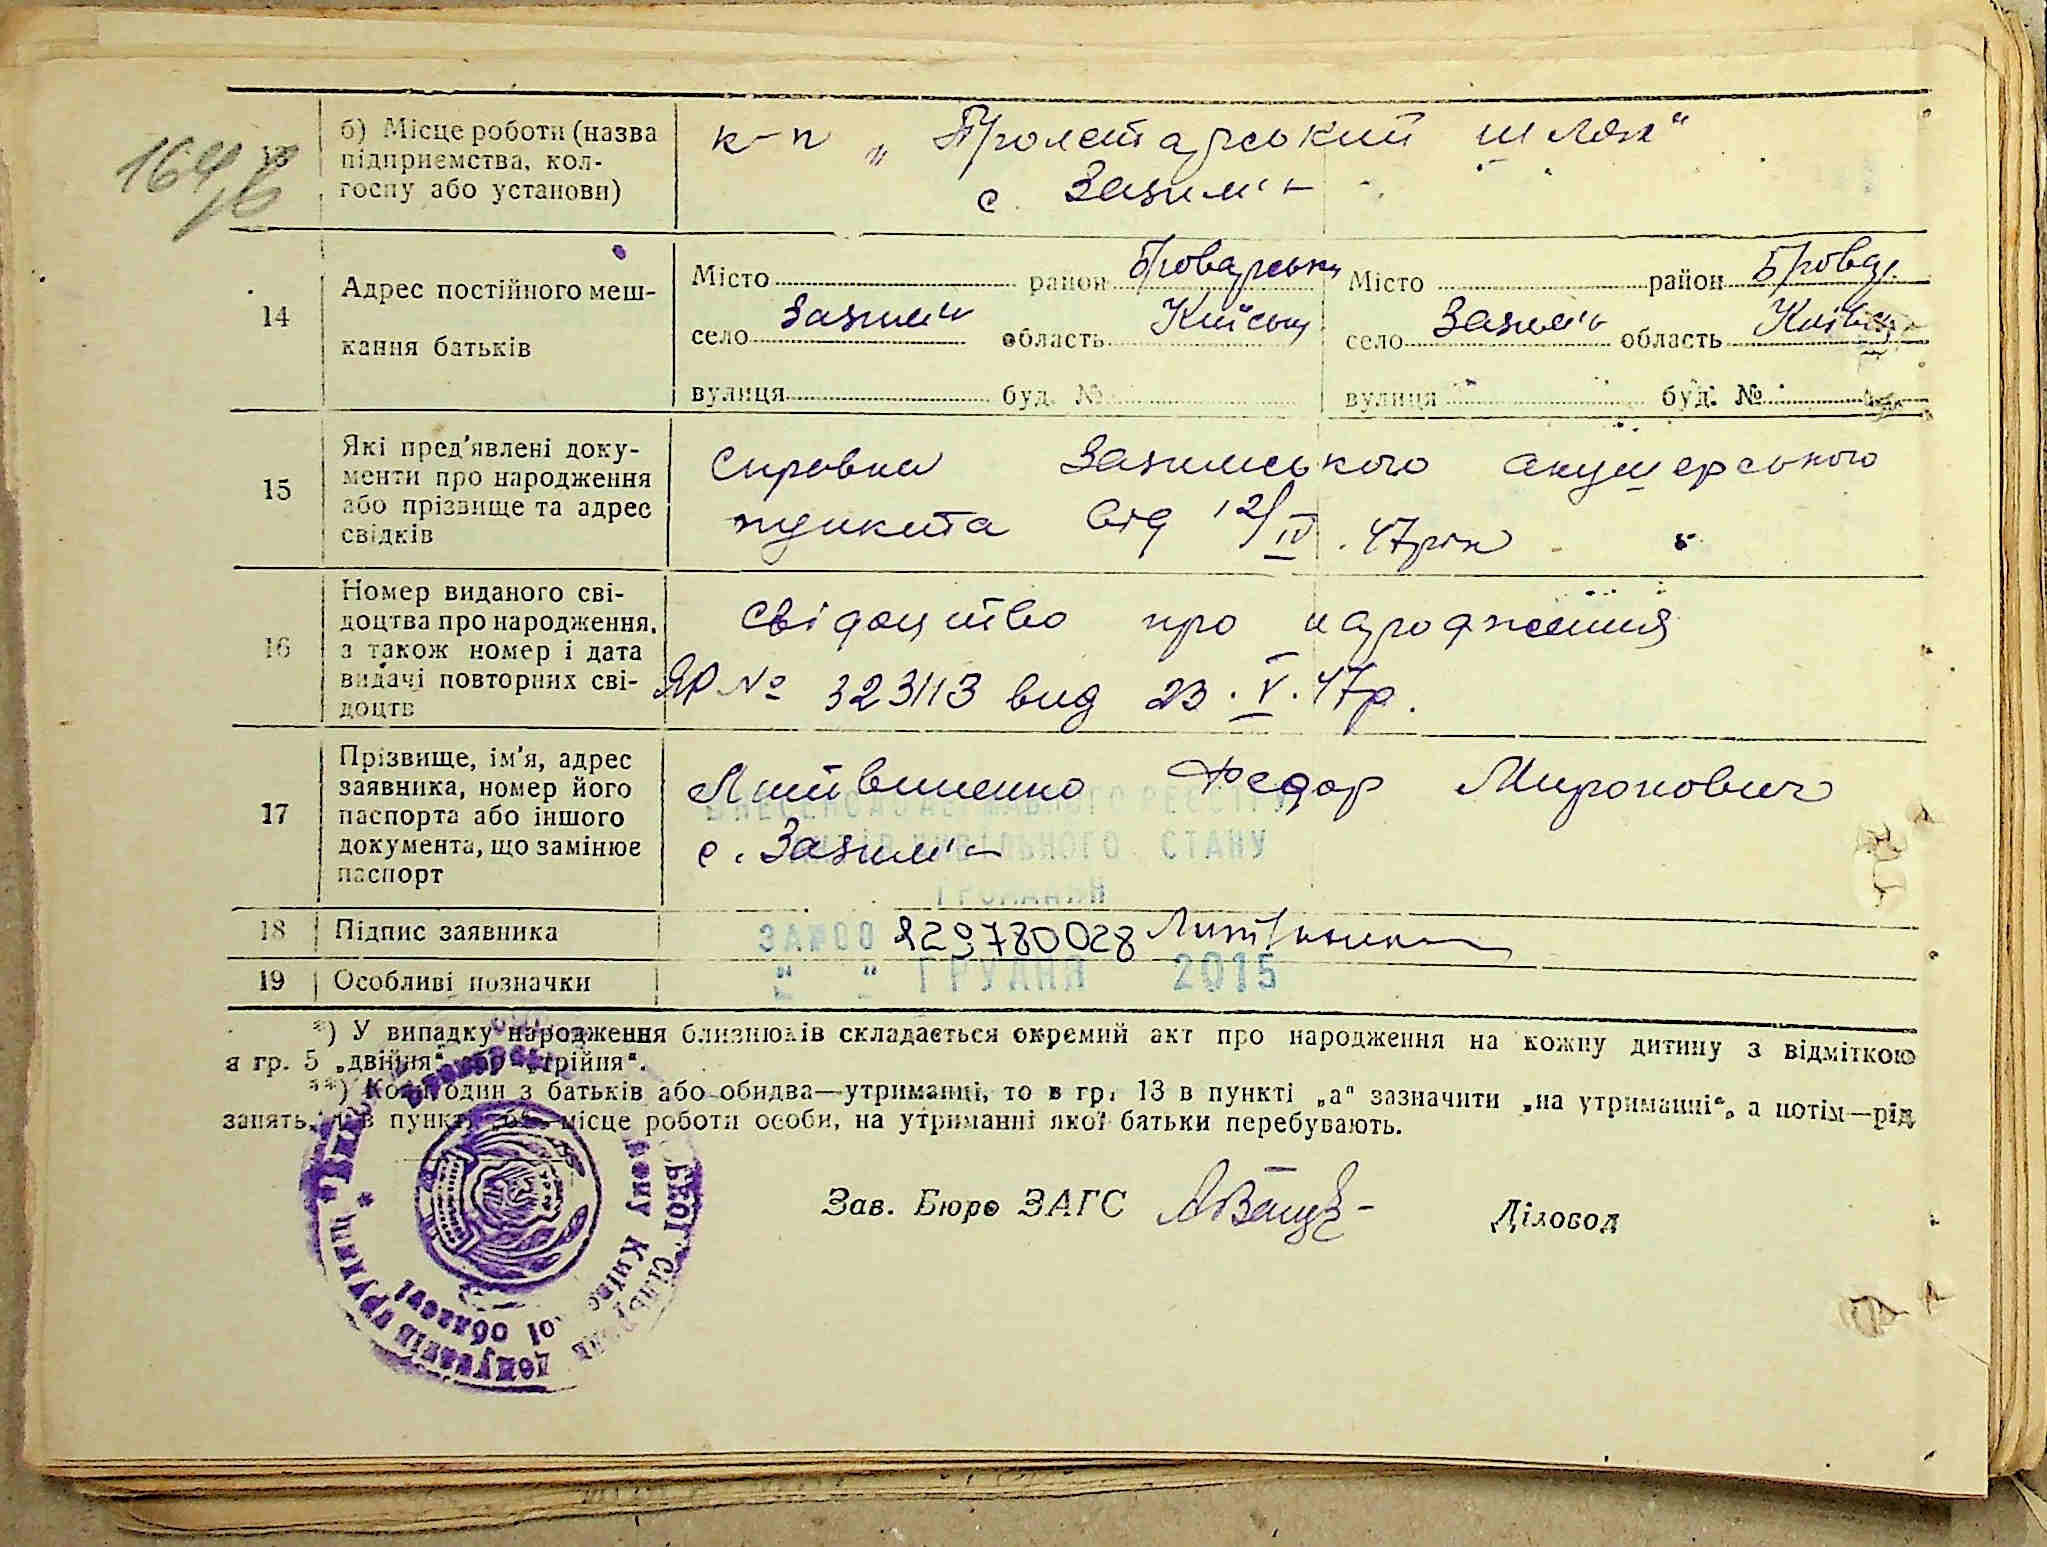 164
б) Місце роботи (назва
підприємства, кол-
госпу або установи)
к-п „Пролетарський шлях"
с. Зазим'є
14
Адрес постійного меш-
кання батьків
Місто район Броварськ
село Зазим'є область Київськ
вулиця буд. №
Місто район Бровар.
село Зазим'є область Київськ
вулиця буд. №
15
Які пред'явлені доку-
менти про народження
або прізвище та адрес
свідків
Справка Зазимського акушерського
пункта від 12/IV .47рік
16
Номер виданого сві-
доцтва про народження,
а також номер і дата
видачі повторних сві-
доцтв
Свідоцтво про народження
ЯР № 323113 вид 23.V.47р.
17
Прізвище, ім'я, адрес
заявника, номер його
паспорта або іншого
документа, що замінює
паспорт
Литвиненко Федор Миронович
с. Зазим'є
ВНЕСЕНО ДО ДЕРЖАВНОГО РЕЄСТРУ
АКТІВ ЦИВІЛЬНОГО СТАНУ
ГРОМАДЯН
18
Підпис заявника
ЗА №00 129780028
" " ГРУДНЯ 2015
19
Особливі позначки
*) У випадку народження близнюків складається окремий акт про народження на кожну дитину з відміткою
в гр. 5 „двійня" або „трійня".
**) Коли один з батьків або обидва—утриманці, то в гр. 13 в пункті „а" зазначити „на утриманні", а потім—рід
занять, а в пункті „б"—місце роботи особи, на утриманні якої батьки перебувають.
Зав. Бюро ЗАГС
Діловод